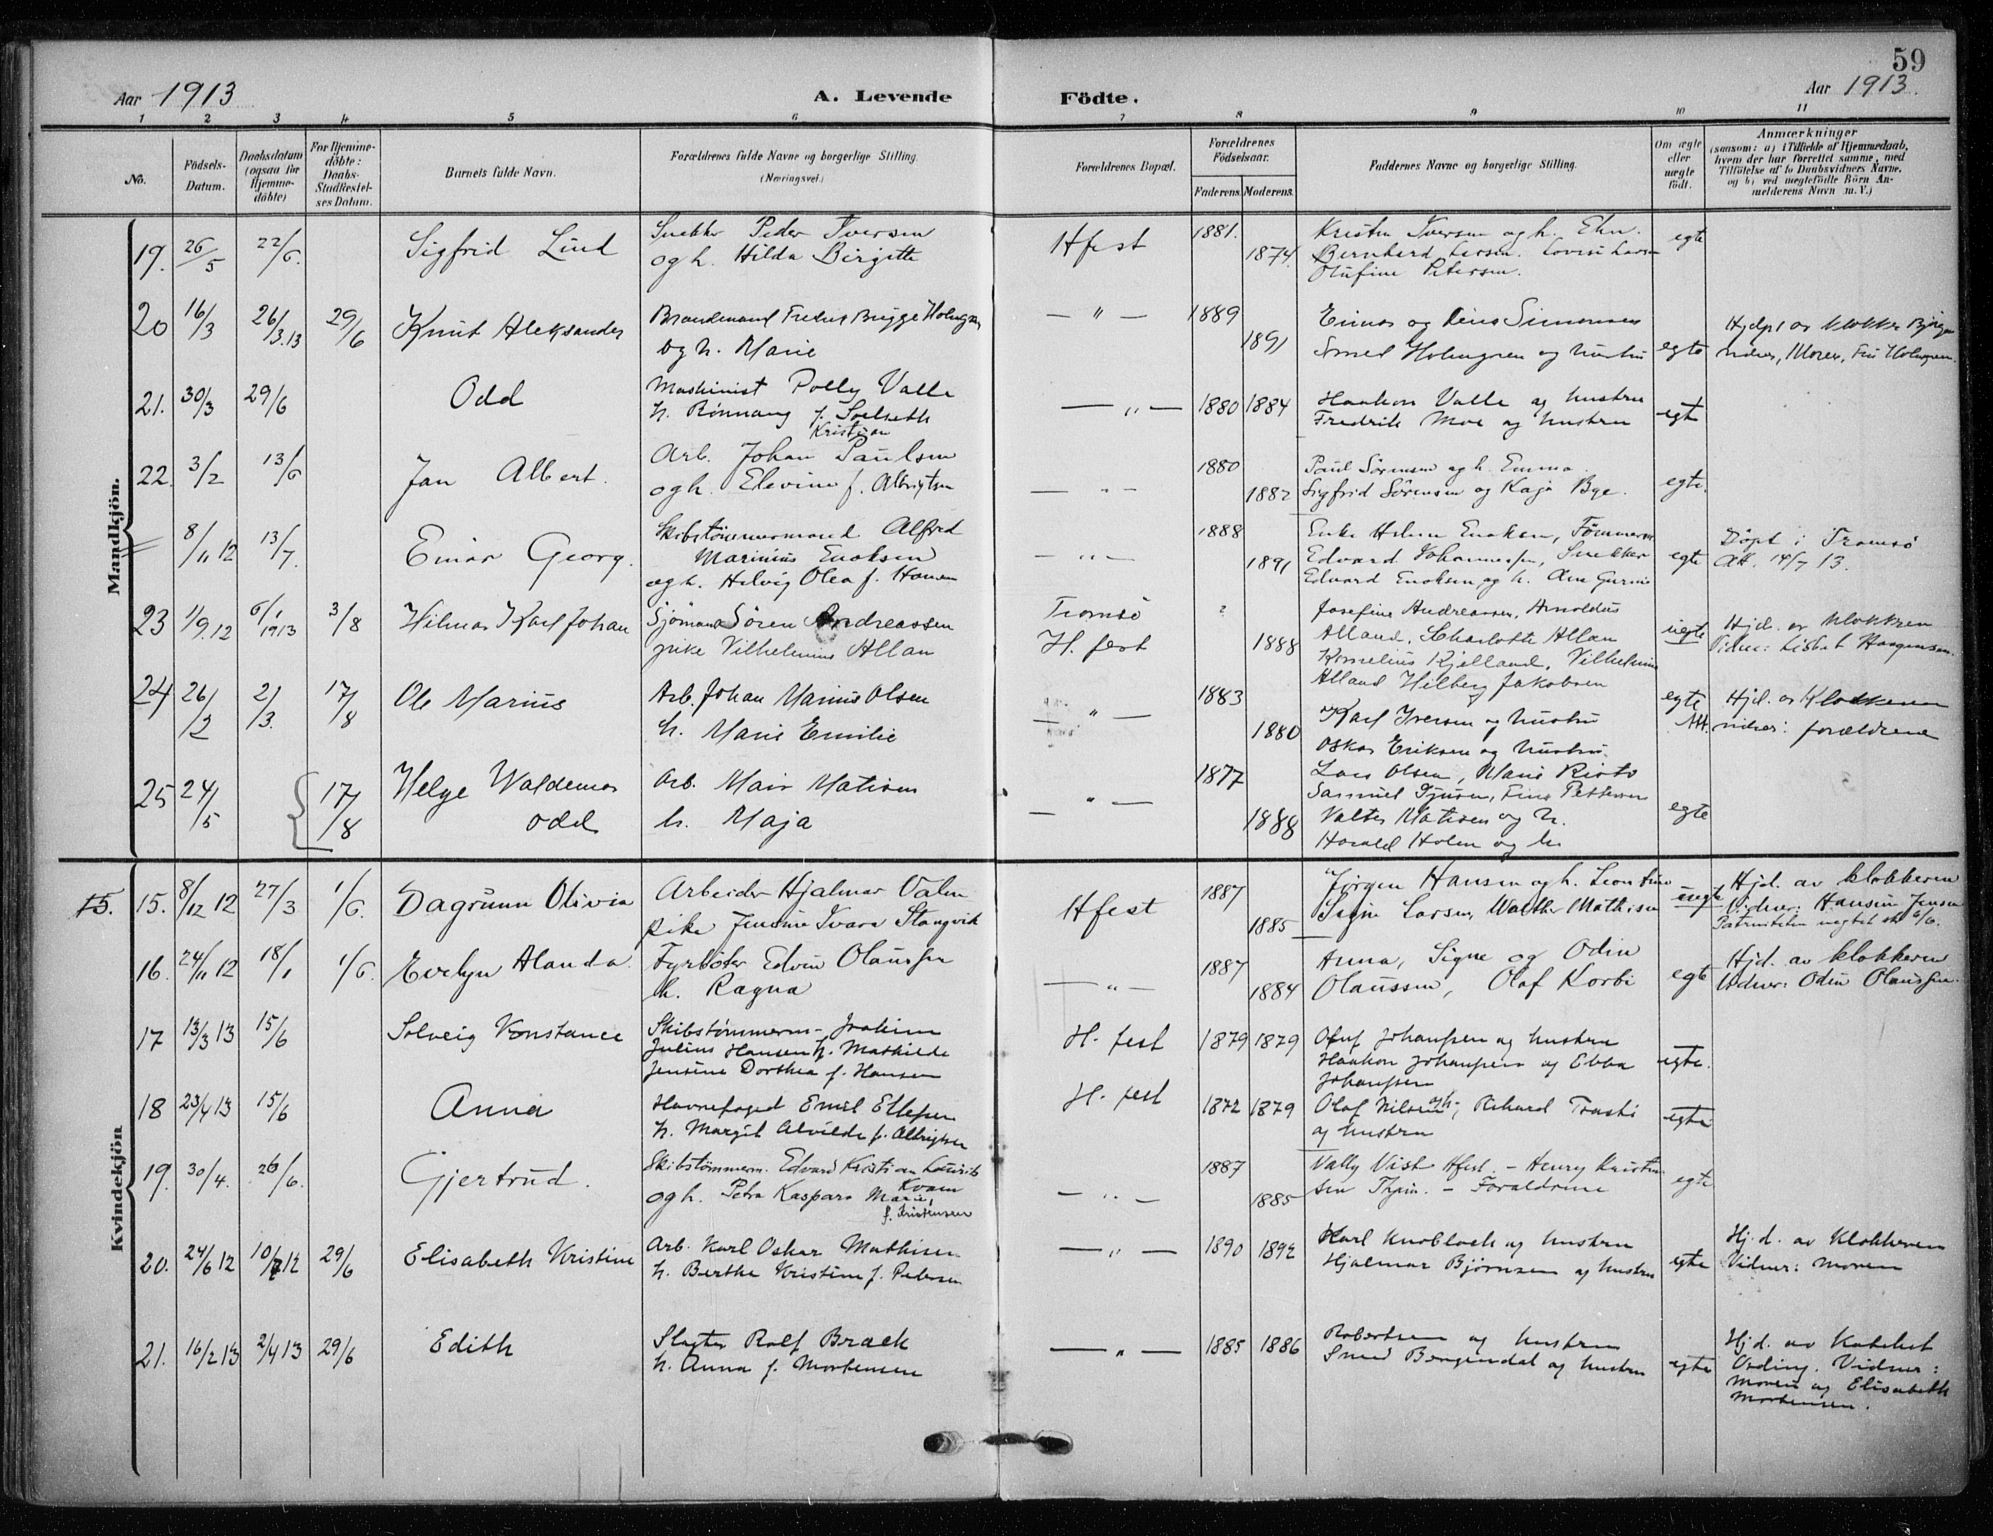 59
Aar 1913
A. Levende Födte.
Aar 1913.
1 2 3 4 5 6 7 8 9 10 11
No.
Födsels-
Datum.
Daabsdatum
(ogsaa for
Hjemme-
döbte)
For Hjemme-
döbte:
Daabs-
Stadfæstel-
ses Datum.
Barnets fulde Navn.
Forældrenes fulde Navne og borgerlige Stilling.
(Næringsvei.)
Forældrenes Bopæl.
Forældrenes
Födselsaar.
Faderens. Moderens.
Faddernes Navne og borgerlige Stilling.
Om ægte
eller
uægte
födt.
Anmærkninger
(saasom: a) i Tilfælde af Hjemmedaab,
hvem der har forrettet samme, med
Tilföielse af to Daabsvidners Navne,
og b) ved uægtefödte Börn An-
melderens Navn m. V.)
Mandkjön.
19. 26/5 22/6. Sigfrid Lind
Snekker Peder Iversen
og h. Hilda Birgitte
Hfest 1881. 1874.
Kristen Iversen og h.
Bernhard Larsen. Lovise Larsen
Olufine Petersen.
egte
20 16/3 26/3.13 29/6 Knut Aleksander
Brandmand Brygge Holmgren
og h. Marie
— " — 1889 1891
Einar og Simonsen
Holmgren og hustru
egte
Hjdpt av klokker
21. 30/3 29/6 Odd
Maskinist Polly Valle
h. Rønnaug f. Solseth
— " — 1880 1884
Haakon Valle og hustru
Fredrik Moe og hustru
egte
22. 3/2 13/6 Jan Albert.
Kristian
Arb. Johan Paulsen
og h. Elevine f. Albrigtsen
— " — 1880 1882
Paul Sørensen og h. Emma.
Sigfrid Sørensen og Kaja Bye.
egte.
8/11 12 13/7 Einar Georg.
Skibstømmermand Alfred
Marinius Enoksen
og h. Helvig Olea f. Hansen
— " — 1888 1891
Enke Enoksen, Tømmerm
Edvard Johannessen, Snekker
Edvard Enoksen og h.
egte
Døpt i Tromsø
Att. 14/7 13.
23 1/9 12 6/1 1913 3/8 Hilmar Karl Johan
Sjømand Søren Andreassen
pike Vilhelmine Allan
Tromsø
H. fest
? 1888
Josefine Andreassen, Arnoldus
Alland, Charlotte Allan
Kornelius Kjelland, Vilhelmine
Alland Hilberg Jakobsen
uegte
Hjd. av klokkeren
Vidner: Lisbet Haagensen.
24 26/2 2/3. 17/8 Ole Marius
Arb. Johan Marius Olsen
h. Marie Emilie
— " — 1883 1880
Karl Iversen og hustru
Oskar Eriksen og hustru.
egte
Att.
Hjd. av Klokkeren
vidner: forældrene
25 24/5 17/8 Helge Waldemar
Odd
Arb. Matisen
h. Maja
— " — 1877 1888
Lars Olsen, Marie
Samuel Tjusen, Pettersen
Valter Matisen og h.
Harald Holm og h.
egte
Kvindekjön
15. 15. 8/12 12 27/3 1/6. Dagrunn Olivia
Arbeider Hjalmar Valm
pike Jensine Ivara Stangvik
Hfest 1887 1885
Jørgen Hansen og h. Leontine
Signe Larsen, Walther Mathisen
uegte
Hjd. av klokkeren
Vidner: Hansine Jensen
16. 24/11 12 18/1 1/6. Evelyn Alanda.
Fyrbøter Edvin Olaussen
h. Ragna
— " — 1887 1884
Anna, Signe og Odin
Olaussen, Olaf Korbi
egte
Hjd. av klokkeren
Vidner: Odin Olaussen.
17 13/3 13 15/6 Solveig Konstance
Skibstømmerm. Joakim
Julius Hansen h. Mathilde
Jensine Dorthea f. Hansen
H. fest 1879 1879
Oluf Johanssen og hustru
Haakon Johanssen og Ebba
Johanssen
egte.
18 23/4 13 15/6 Anna
Havnefoged Emil Ellefsen
h. Margit Alvilde f. Albrigtsen
H. fest 1872 1879
Olaf Nilsen og h., Rikard Trasti
og hustru
egte
19. 30/4. 26/6. Gjertrud.
Skibstømmerm. Edvard Kristian Laurits
Kvam
og h. Petra Kaspara Marie,
f. Kristensen
— " — 1887 1885
Vally Vist Hfest. — Henry Kristen-
sen — Forældrene
egte
20. 24/6 12 10/7 12 29/6 Elisabeth Kristine
Arb. Karl Oskar Mathisen
h. Berthe Kristine f. Pedersen
— " — 1890 1892
Karl Knoblock og hustru
Hjalmar Bjørnsen og hustru
egte
Hj.d. av Klokkeren
Vidner: moren
21. 16/2 13 2/4 13 29/6 Edith
Slagter Rolf Braek
h. Anna f. Mortensen
— " — 1885 1886
Robertsen og hustru
Smed Bergendal og hustru
egte
Hj.d. av Kateket
Ording. Vidner:
Moren og Elisabeth
Mortensen.